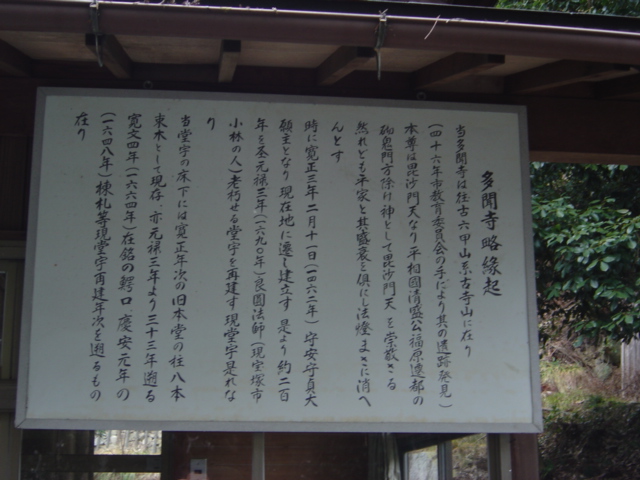 多聞寺略縁起
当多聞寺は往古六甲山系古寺山に在り
(四十六年市教育委員会の手により其の遺跡発見)
本尊は毘沙門天なり平相國清盛公福原遷都の
砌鬼門方除け神として毘沙門天を崇敬さる
然れども平家と其盛衰と倶にし法燈まさに消へ
んとす
時に寛正三年二月十一日(一四六二年)守安守貞大
願主となり現在地に遷し建立す是より約二百
年を圣元禄三年(一六九〇年)良圓法師(現宝塚市
小林の人)老朽せる堂宇を再建す現堂宇是れな
り
当堂宇の床下には寛正年次の旧本堂の柱八本
束木として現存亦元禄三年より三十三年遡る
寛文四年(一六六四年)在銘の鰐口、慶安元年の
(一六四八年)棟札等現堂宇再建年次を遡るもの
在り